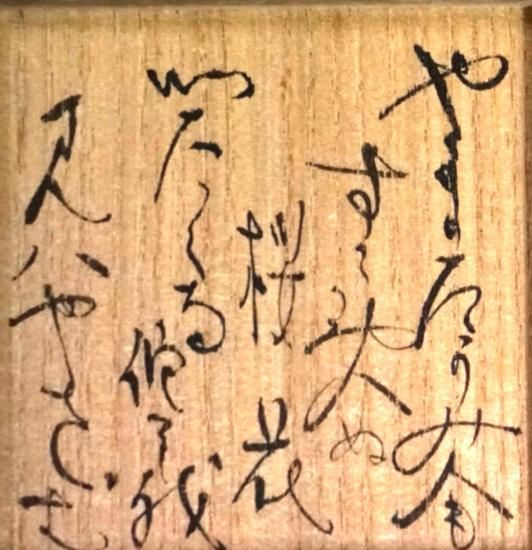 やまたかみ人も
すさめぬ
桜花
いたくな侘そ我
見ハやさむ